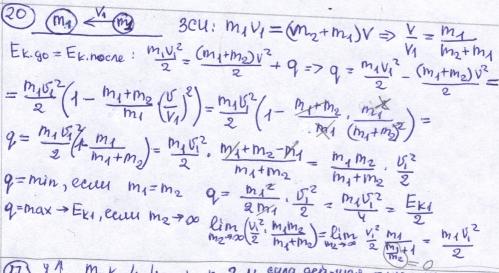 20 m₁ ← v₁ m₂ ЗСИ: m₁v₁ = (m₂+m₁)v ⇒ v/v₁ = m₁/(m₂+m₁)
Eк.до = Eк.после: m₁v₁²/2 = (m₁+m₂)v²/2 + q ⇒ q = m₁v₁²/2 - (m₁+m₂)v²/2 =
= m₁v₁²/2 (1 - (m₁+m₂)/m₁ (v/v₁)²) = m₁v₁²/2 (1 - (m₁+m₂)/m₁ · m₁²/(m₁+m₂)²) =
q = m₁v₁²/2 (1 - m₁/(m₁+m₂)) = m₁v₁²/2 · (m₁+m₂-m₁)/(m₁+m₂) = m₁m₂/(m₁+m₂) · v₁²/2
q = min, если m₁ = m₂ q = m₁²/2m₁ · v₁²/2 = m₁v₁²/4 = Eк₁/2
q = max → Eк₁, если m₂ → ∞ lim m₂→∞ (v₁²/2 · m₁m₂/(m₁+m₂)) = lim m₂→∞ v₁²/2 m₁/(m₁/m₂+1) = m₁v₁²/2
= 0